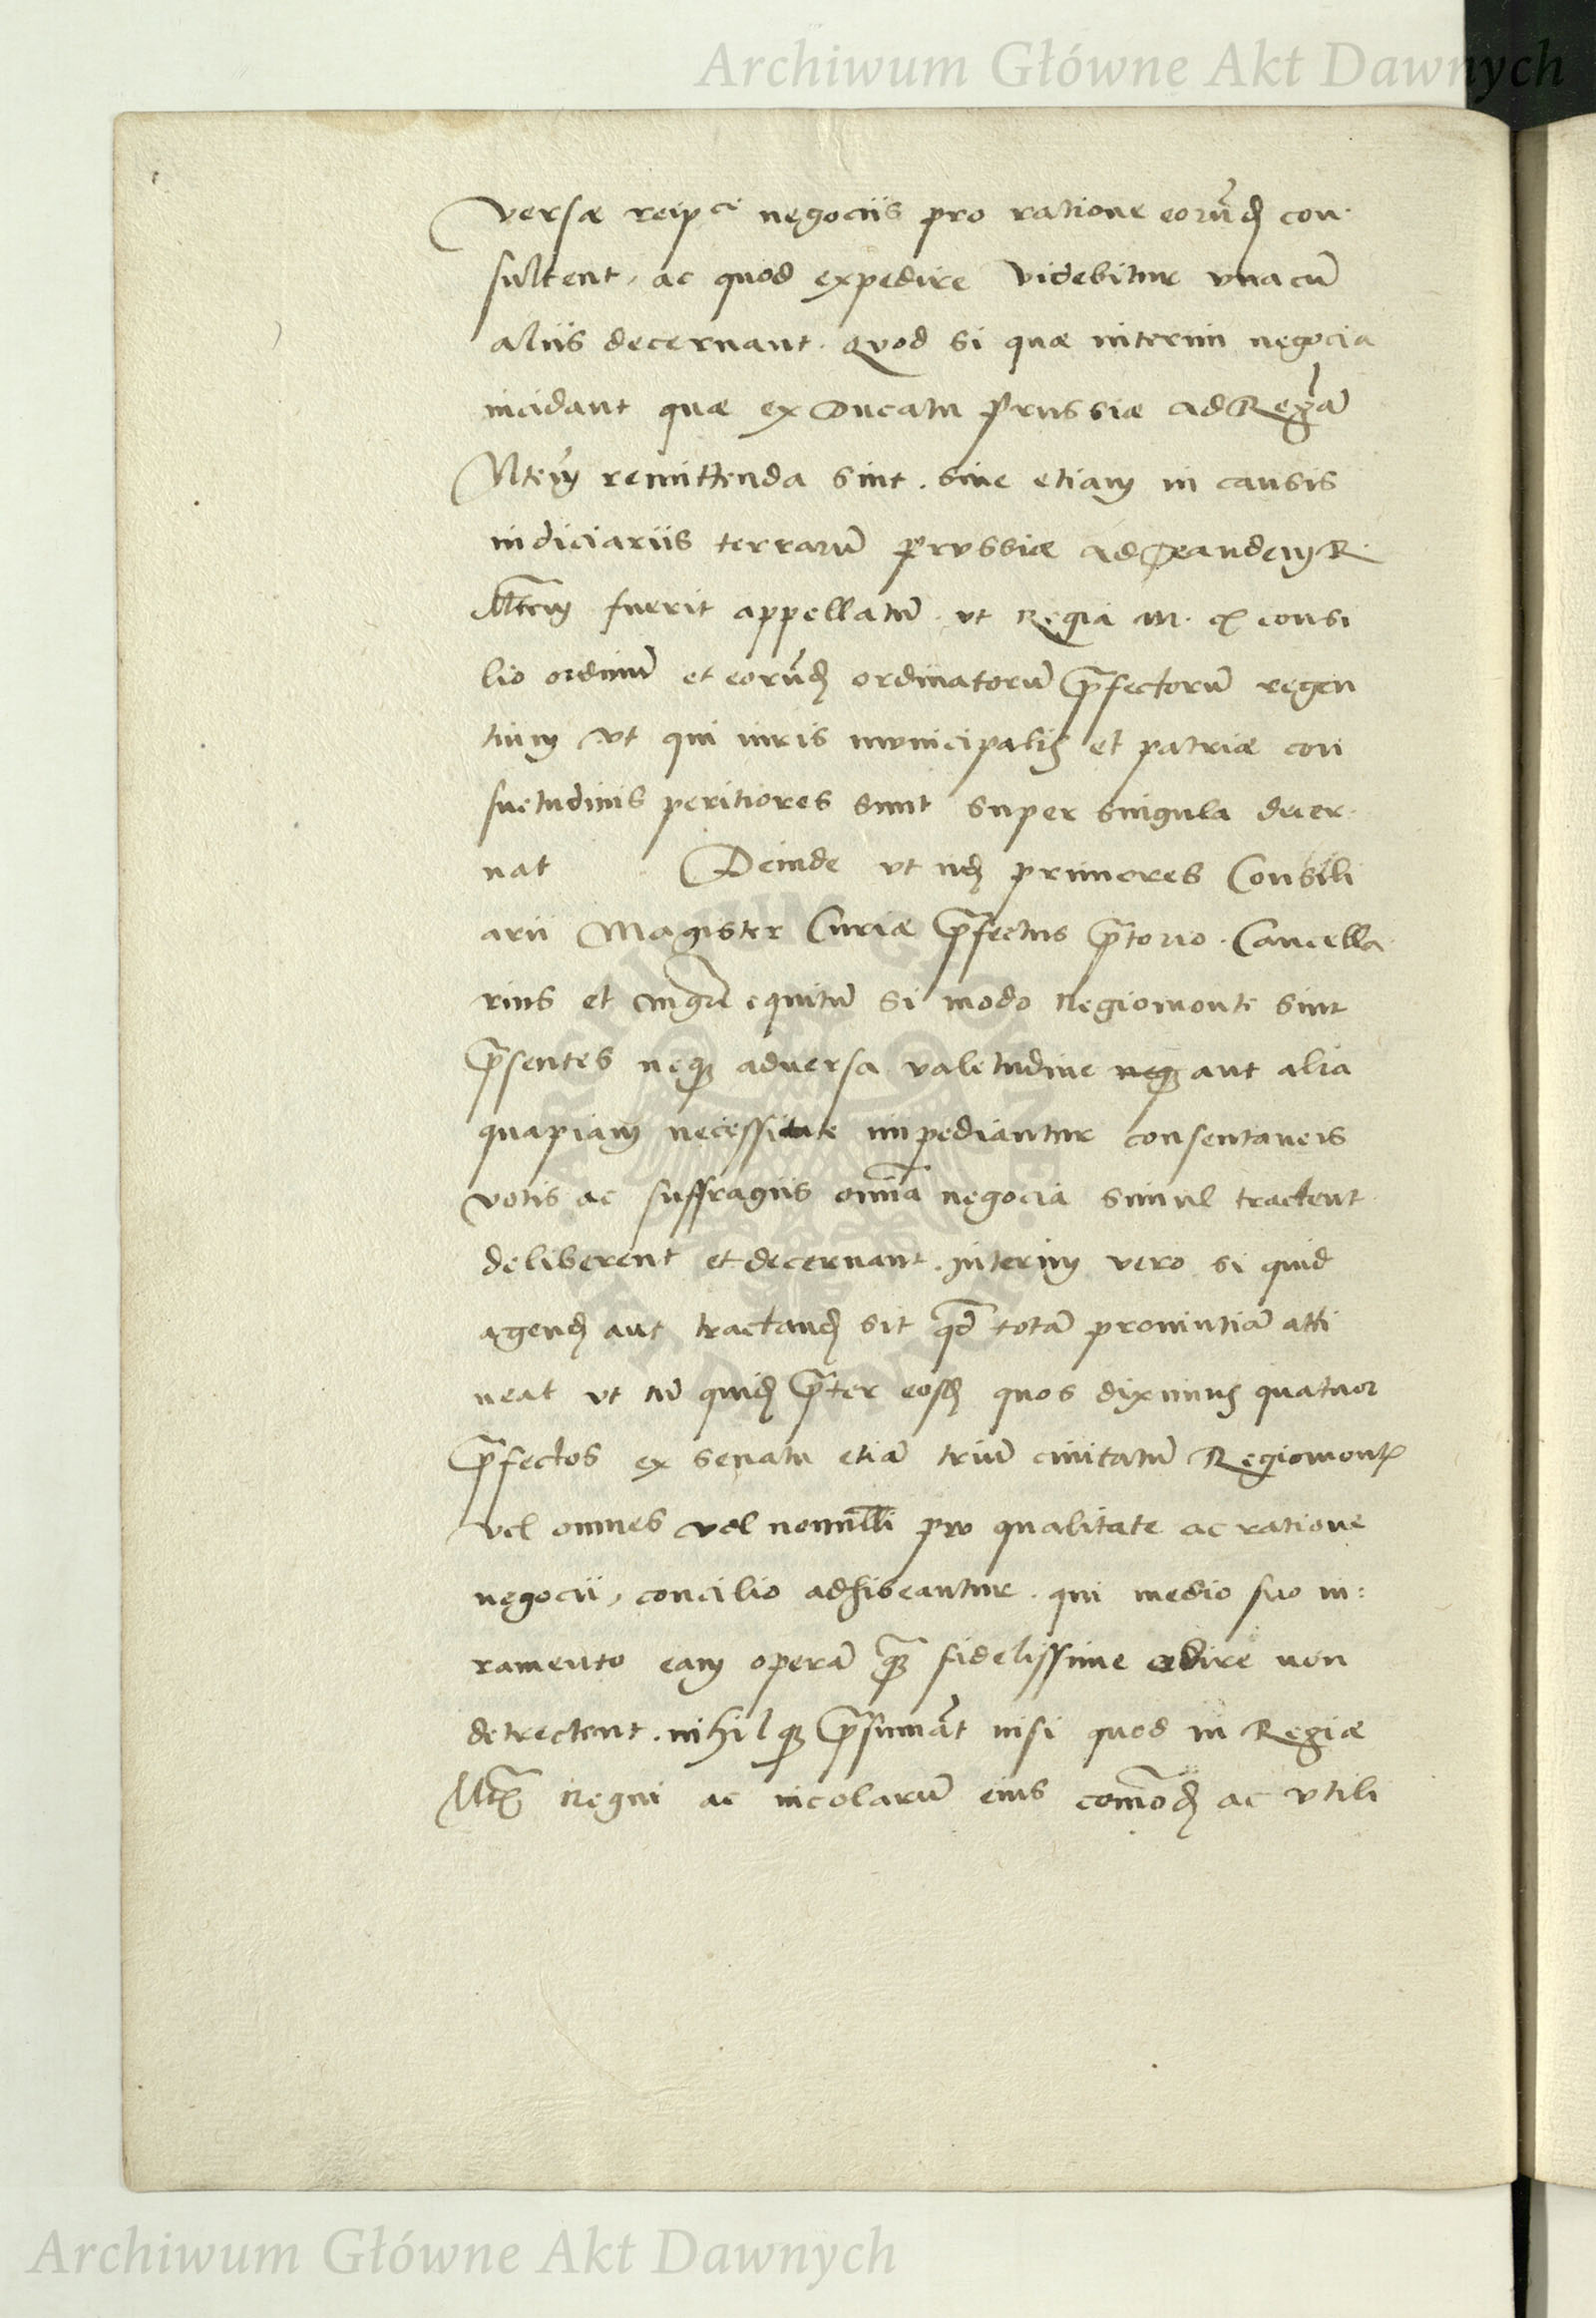 Archiwum Główne Akt Dawnych
versæ reip^ce negociis pro ratione eorūd con-
sultent, ac quod expedire videbitur vnacū
aliis decernant. Quod si quæ interim negocia
incidant quæ ex Ducatu Prussiæ ad Regiā
Mtem remittenda sint. siue etiam in causis
iudiciariis terrarū Prussiæ ad eandem R.
Mtem fuerit appellatū. vt Regia M. ex consi
lio ordinū et eorūd ordinatorū p̄fectorū regen
tium vt qui iuris municipalis et patriæ con
suetudinis peritiores sunt super singula decer-
nat Deinde vt iid primores Consili
arii Magister Curiæ p̄fectus p̄torio. Cancella-
rius et mgr̄ equitū si modo Regiomonte sint
p̄sentes neq aduersa valetudine neq aut alia
quapiam necessitate impediantur consentaneis
votis ac suffragiis om̄ia negocia simul tractent
deliberent et decernant. interim vero si quid
agend aut tractand sit qd̄ totā prouintiā atti
neat vt tū quid p̄ter eosd quos diximus quatuor
p̄fectos ex senatu etiā triū ciuitatū Regiomont
vel omnes vel nonnulli pro qualitate ac ratione
negocii, concilio adhibeantur. qui medio suo iu:
ramento eam operā q̄ fidelissime obire non
detrectent. nihilq p̄sumāt nisi quod in Regiæ
Mtis Regni ac incolarū eius com̄od ac vtili
Archiwum Główne Akt Dawnych